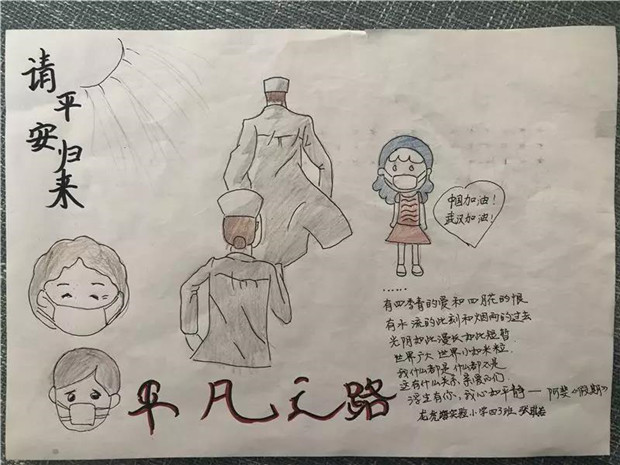 请平安归来
中国加油!
武汉加油!
......
有四季青的爱和四月花的恨
有水流的此刻和烟雨的过去
光阴如此漫长如此短暂
世界广大 世界小如米粒
我什么都是 什么都不是
这有什么关系, 亲爱的们
浮生有你, 我心如平静——阿斐《假期》
龙虎塘实验小学四3班
平凡之路